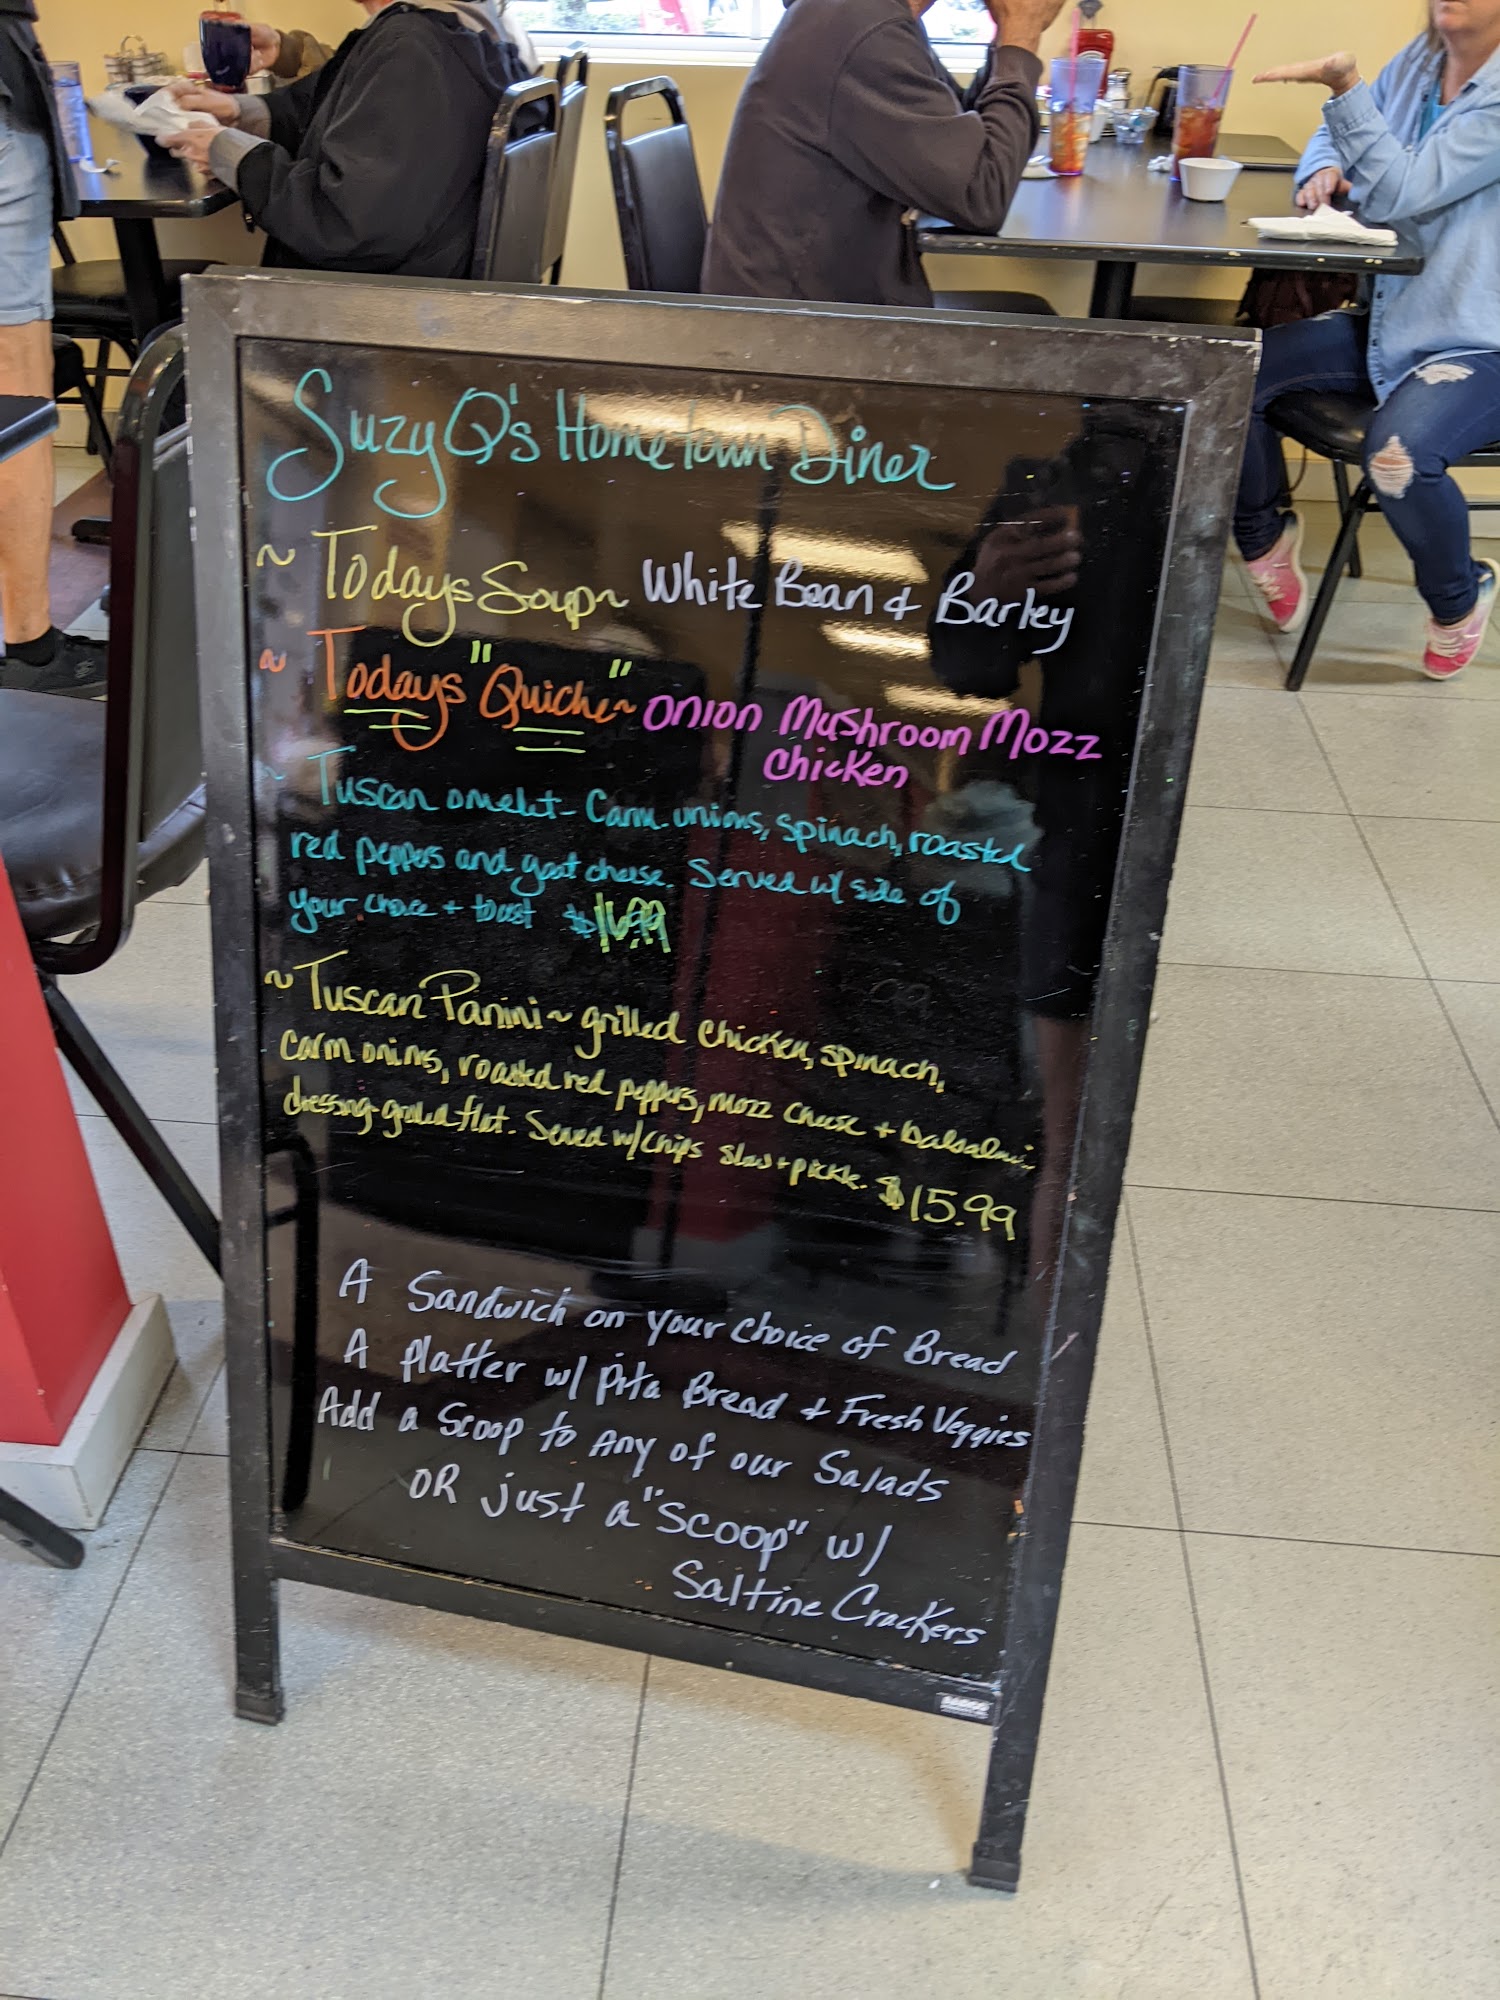 SuzyQ's HomeTown Diner
~ Todays Soup~ White Bean & Barley
~ Todays "Quiche"~ Onion Mushroom Mozz
Chicken
~ Tuscan omelet- Carm. unions, spinach, roasted
red peppers and goat cheese. Served w/ side of
your choice + toast $16.99
~ Tuscan Panini ~ grilled chicken, spinach,
carm onins, roasted red peppers, mozz cheese + balsalmi..
dressing-grilled flat. Served w/chips slaw + pickle. $15.99
A Sandwich on Your choice of Bread
A platter w/ pita Bread & Fresh Veggies
Add a Scoop to any of our Salads
OR just a "Scoop" w/
Saltine Crackers